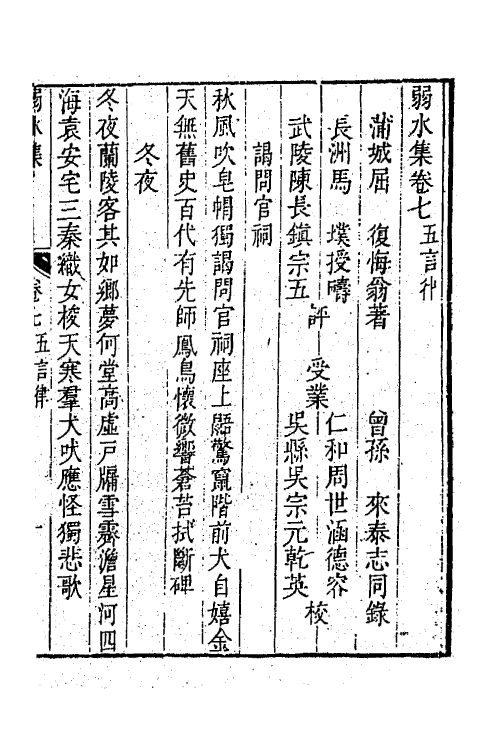 弱水集卷七 五言律
蒲城屈 復悔翁著 曾孫 來泰志同錄
長洲馬 墣授疇 仁和周世涵德容
評 受業 校
武陵陳長鎮宗五 吳縣吳宗元乾英
謁問官祠
秋風吹皂帽獨謁問官祠座上鼯驚竄階前犬自嬉金
天無舊史百代有先師鳳鳥懷微響蒼苔拭斷碑
冬夜
冬夜蘭陵客其如鄉夢何堂高虛戶牖雪霽澹星河四
海袁安宅三秦織女梭天寒羣犬吠應怪獨悲歌
弱水集 卷七五言律 一